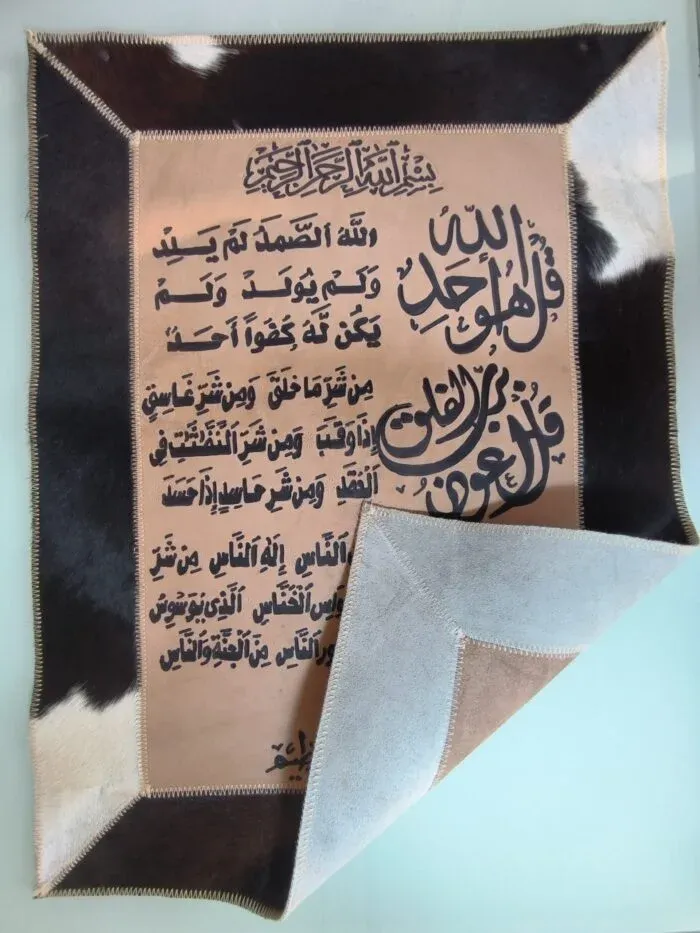 بِسْمِ ٱللَّهِ ٱلرَّحْمَٰنِ ٱلرَّحِيمِ
قُلْ هُوَ ٱللَّهُ أَحَدٌ
ٱللَّهُ ٱلصَّمَدُ لَمْ يَلِدْ
وَلَمْ يُولَدْ وَلَمْ
يَكُن لَّهُ كُفُوًا أَحَدٌ
قُلْ أَعُوذُ بِرَبِّ ٱلْفَلَقِ
مِن شَرِّ مَا خَلَقَ وَمِن شَرِّ غَاسِقٍ
إِذَا وَقَبَ وَمِن شَرِّ ٱلنَّفَّٰثَٰتِ فِي
ٱلْعُقَدِ وَمِن شَرِّ حَاسِدٍ إِذَا حَسَدَ
ٱلنَّاسِ إِلَٰهِ ٱلنَّاسِ مِن شَرِّ
ٱلْخَنَّاسِ ٱلَّذِي يُوَسْوِسُ
ٱلنَّاسِ مِنَ ٱلْجِنَّةِ وَٱلنَّاسِ